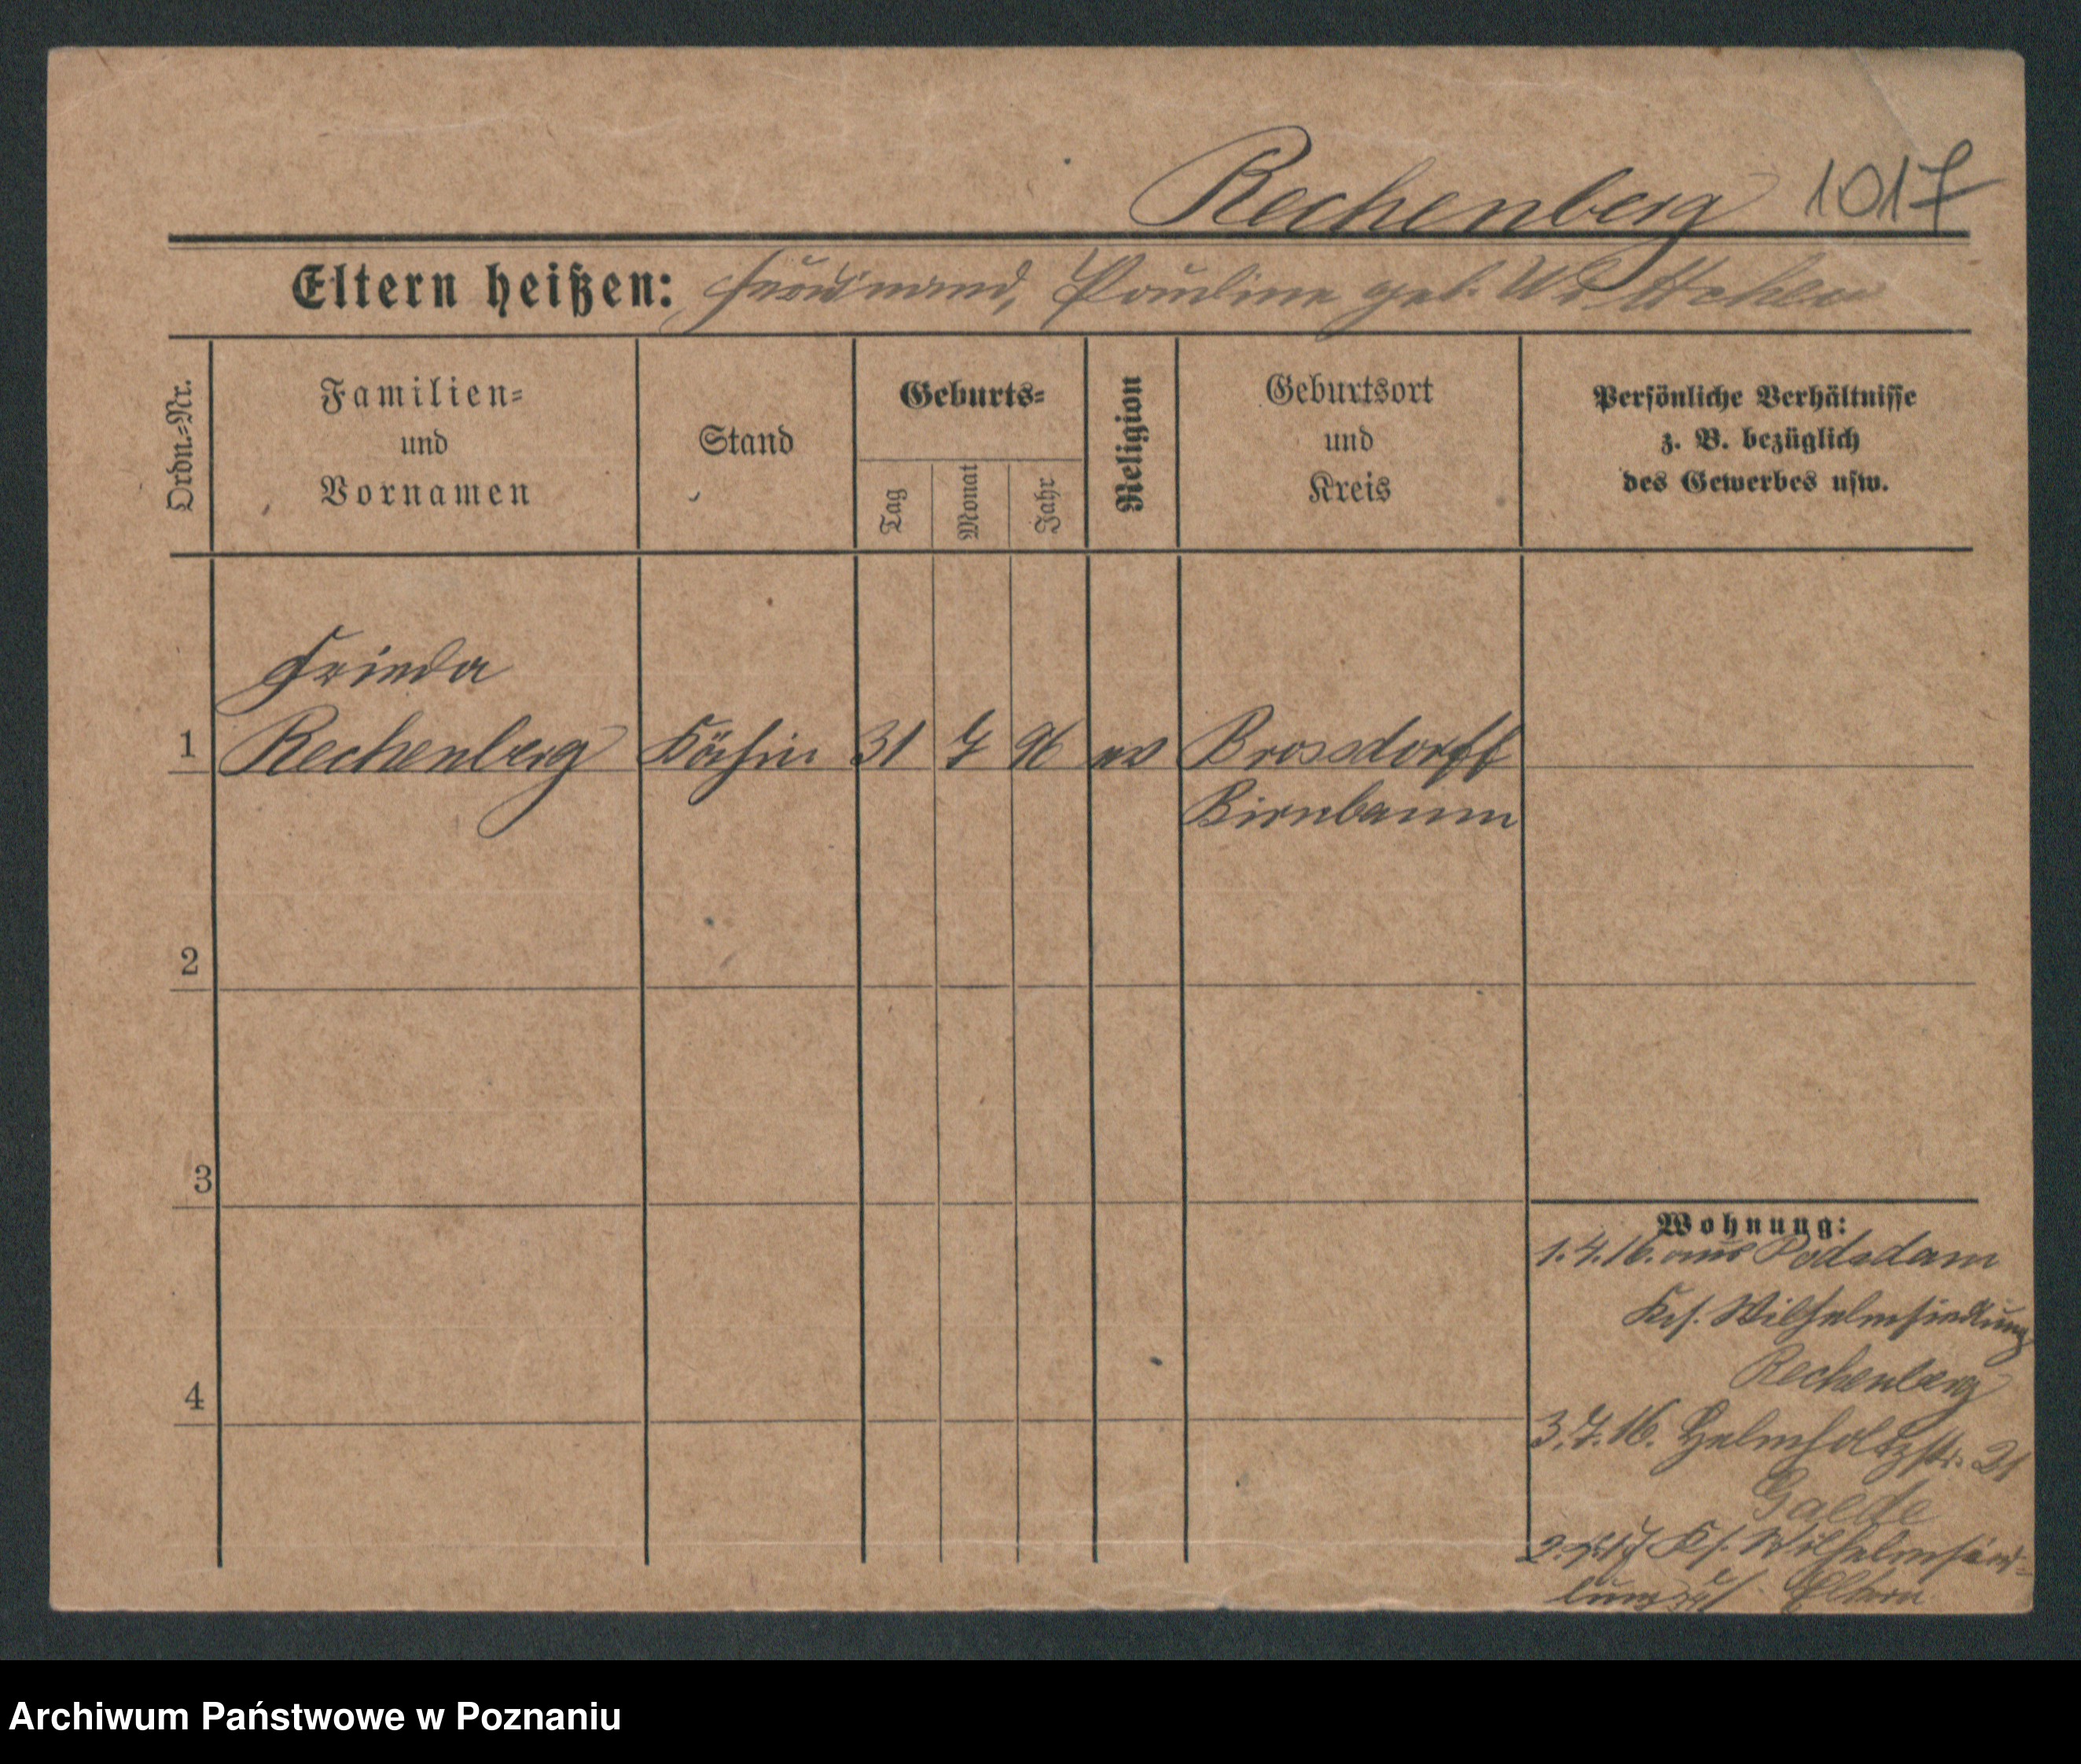 Rechenberg 1017
Eltern heißen: Ferdinand, Pauline geb. Wittchen
Ordn.=Nr.
Familien=
und
Vornamen
Stand
Geburts=
Tag
Monat
Jahr
Religion
Geburtsort
und
Kreis
Persönliche Verhältnisse
z. B. bezüglich
des Gewerbes usw.
Frieda
1 Rechenberg Köchin 31 7 96 ev Brossdorff
Birnbaum
2
3
4
Wohnung:
1.4.16. aus Podsdam
Wilhelmsiedlung
Rechenberg
3.7.16. Helmholtzstr. 21
Gaede
Wilhelmsied-
lung Eltern
Archiwum Państwowe w Poznaniu